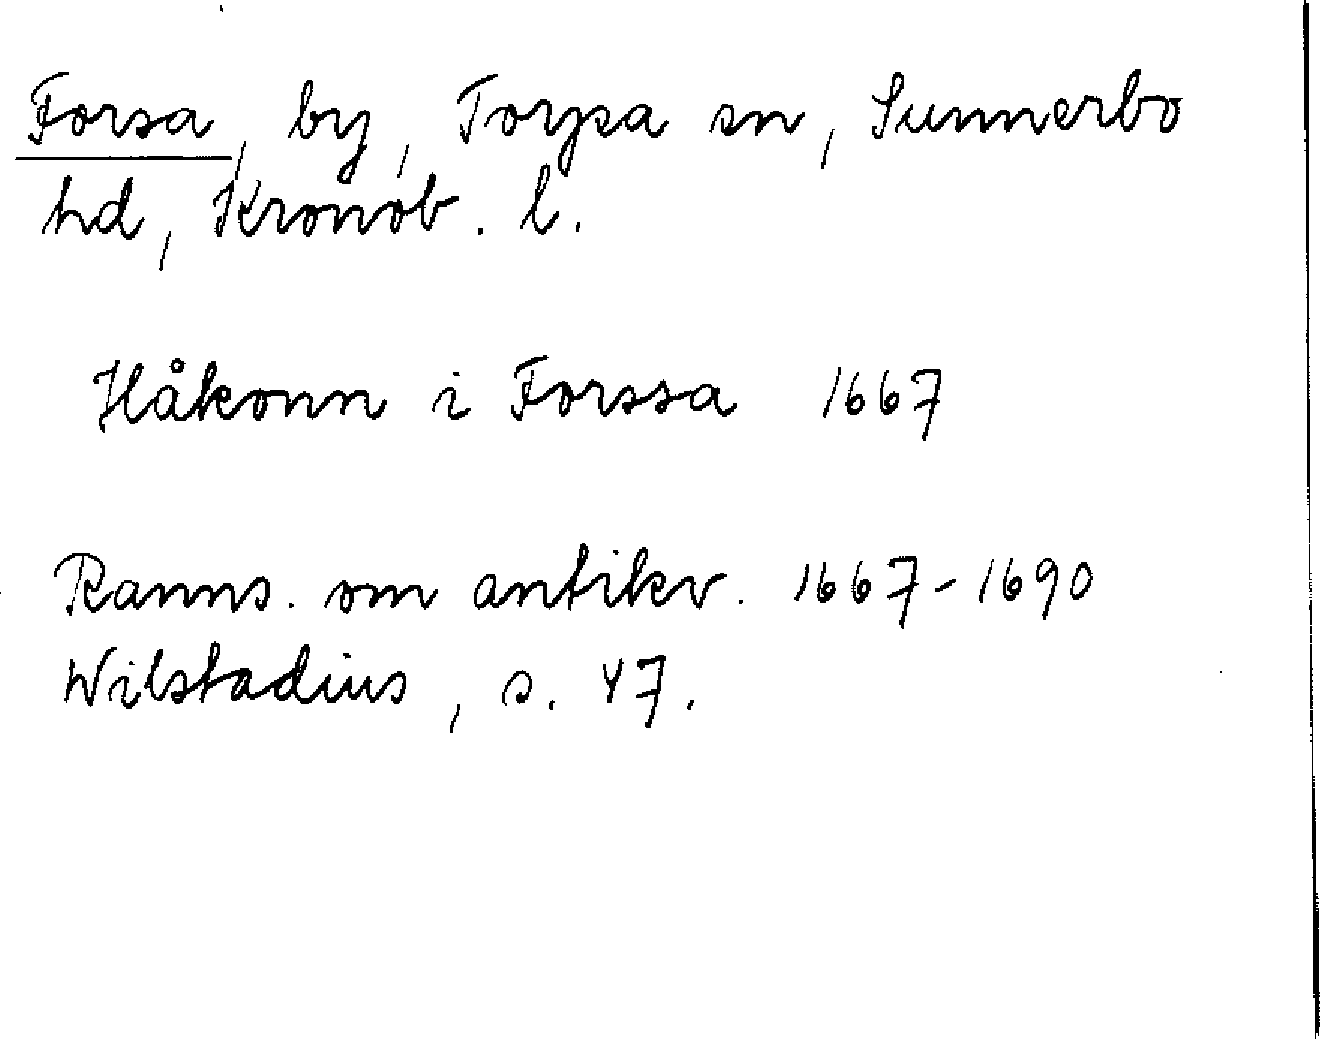 Forsa, by, Torpa sn, Sunnerbo
hd, Kronob. l.
Håkonn i Forssa 1667
Ranns. om antikv. 1667-1690
Wilstadius, s. 47.